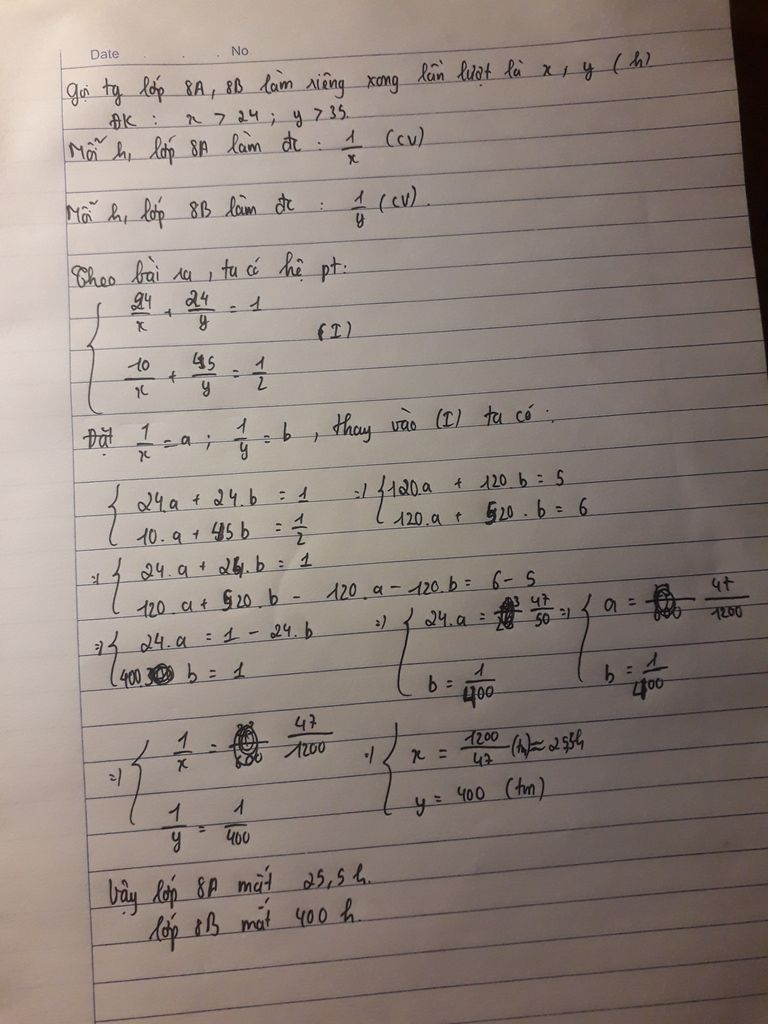 Date . . . No
Gọi tg lớp 8A, 8B làm riêng xong lần lượt là x, y (h)
ĐK : x > 24 ; y > 35.
Mỗi h, lớp 8A làm đc : 1/x (cv)
Mỗi h, lớp 8B làm đc : 1/y (cv).
Theo bài ra, ta có hệ pt:
{ 24/x + 24/y = 1
(I)
10/x + 45/y = 1/2
Đặt 1/x = a ; 1/y = b, thay vào (I) ta có :
{ 24.a + 24.b = 1 => { 120.a + 120.b = 5
10.a + 45b = 1/2 120.a + 520.b = 6
=> { 24.a + 24.b = 1
120.a + 520.b - 120.a - 120.b = 6 - 5
=> { 24.a = 1 - 24.b => { 24.a = 47/50 => { a = 47/1200
400 b = 1 b = 1/400 b = 1/400
=> { 1/x = 47/1200 => { x = 1200/47 (tm) ≈ 25,5h
1/y = 1/400 y = 400 (tm)
Vậy lớp 8A mất 25,5 h.
lớp 8B mất 400 h.